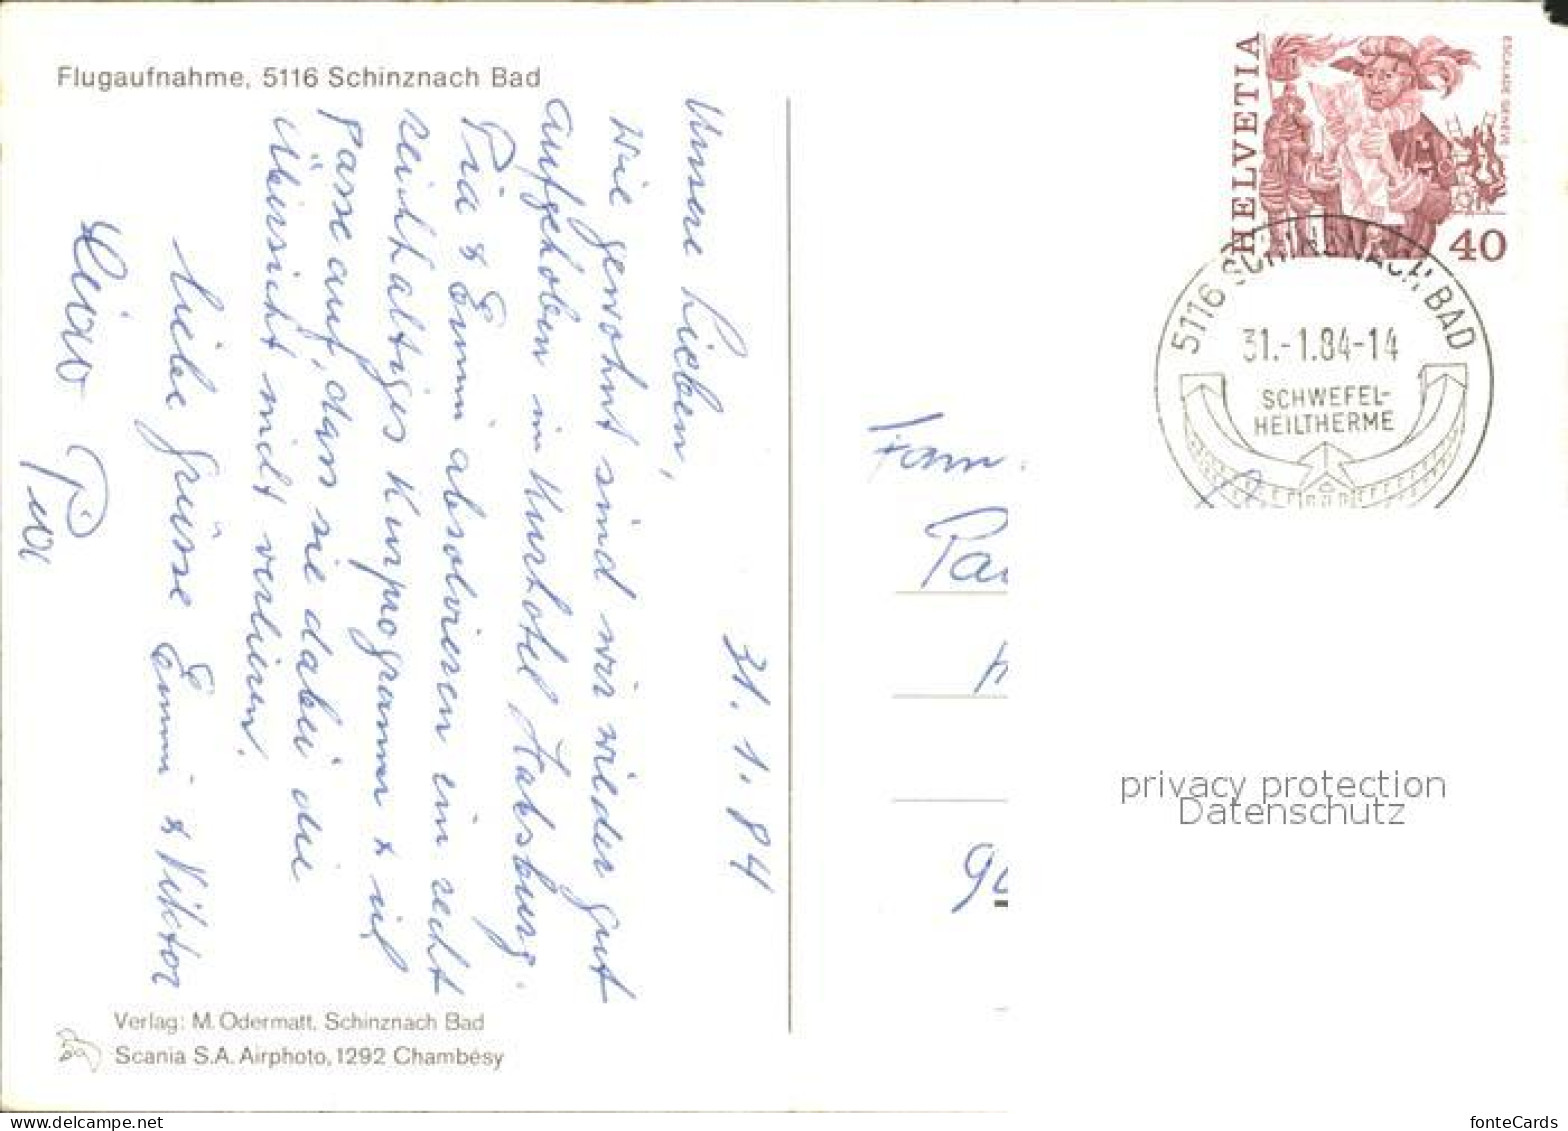 Flugaufnahme, 5116 Schinznach Bad
31. 1. 84
Unsere Lieben,
Wie gewohnt sind wir wieder gut
aufgehoben im Kurhotel Habsburg.
Pia & Emmi absolvieren ein recht
reichhaltiges Kurprogramm & ich
passe auf, dass sie dabei die
Übersicht nicht verlieren.
Liebe Grüsse Emmi & Viktor
Pia
Verlag: M. Odermatt, Schinznach Bad
Scania S.A. Airphoto, 1292 Chambésy
HELVETIA
ESCALADE GENÈVE
40
5116 SCHINZNACH BAD
31.-1.84-14
SCHWEFEL-
HEILTHERME
Fam.
privacy protection
Datenschutz
fonteCards